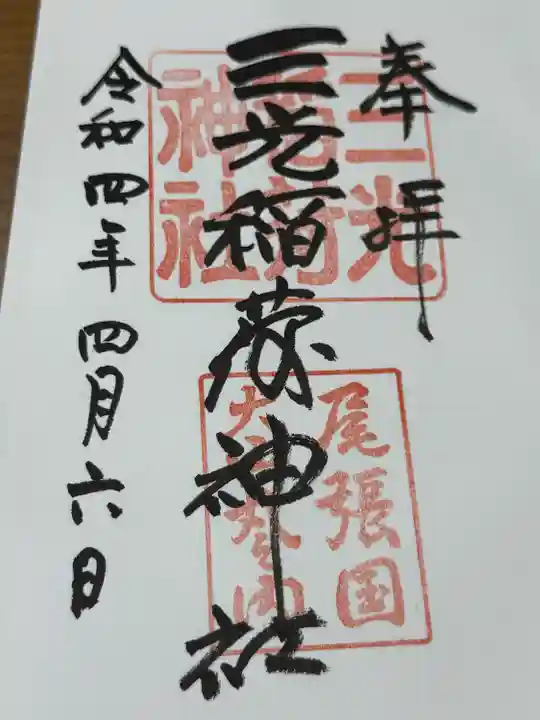 奉拝
三光稲荷神社
令和四年四月六日
三光
稲荷
神社
尾張国